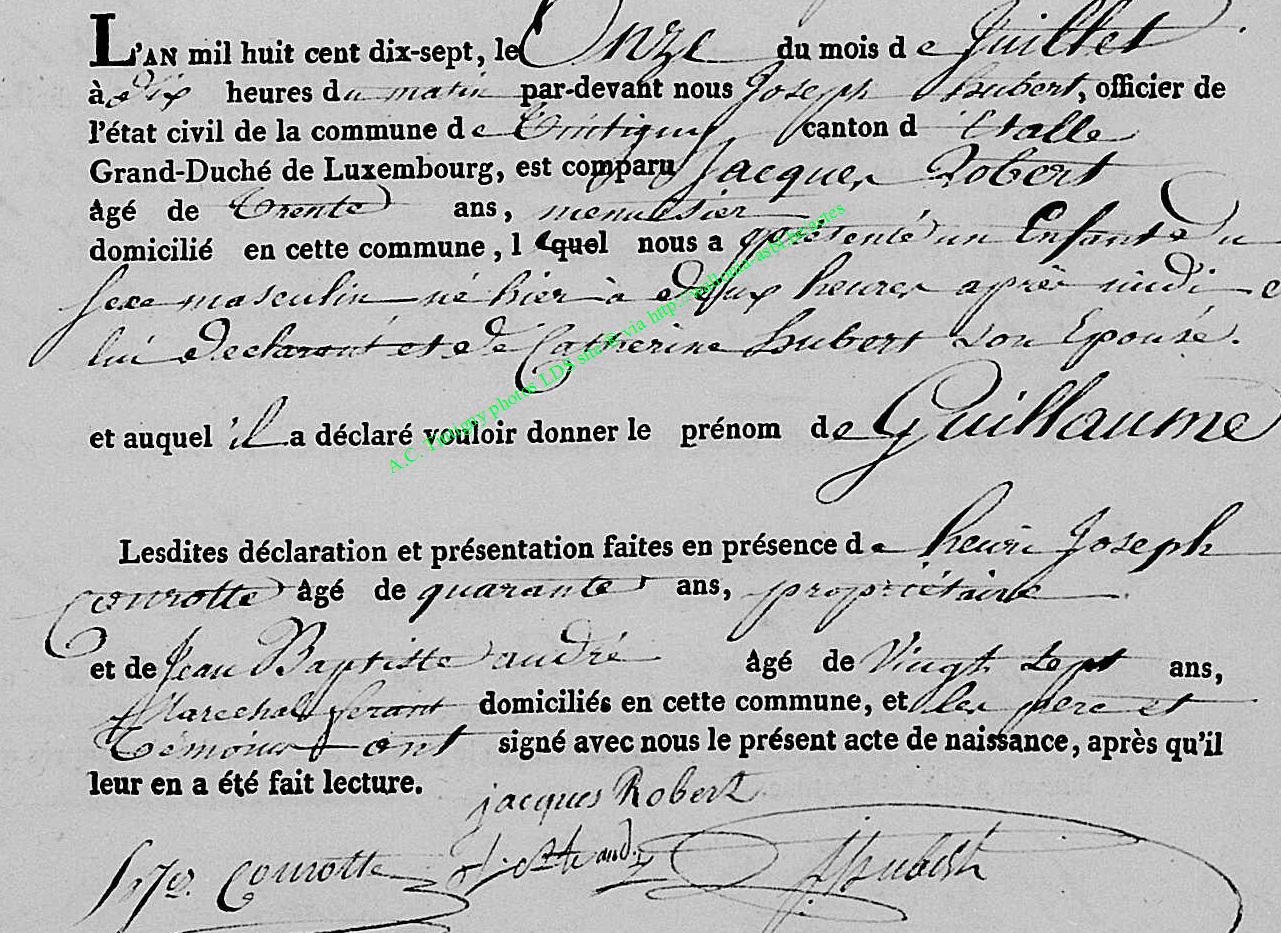 L'AN mil huit cent dix-sept, le Onze du mois de Juillet
à dix heures du matin par-devant nous Joseph hubert, officier de
l'état civil de la commune de Tintigny canton d'Etalle
Grand-Duché de Luxembourg, est comparu Jacques Robert
âgé de trente ans, menuisier
domicilié en cette commune, lequel nous a présenté un Enfant du
sexe masculin né hier à deux heures après midi de
lui déclarant et de Catherine hubert son Epouse.
et auquel il a déclaré vouloir donner le prénom de Guillaume
Lesdites déclaration et présentation faites en présence de henri Joseph
Courotte âgé de quarante ans, propriétaire
et de Jean Baptiste andré âgé de Vingt sept ans,
Marechal ferant domiciliés en cette commune, et les pere et
témoins ont signé avec nous le présent acte de naissance, après qu'il
leur en a été fait lecture.
jacques Robert
Courotte hubert
A.C. Tintigny photos LDS site © via http://wallonia-asbl.be/actes